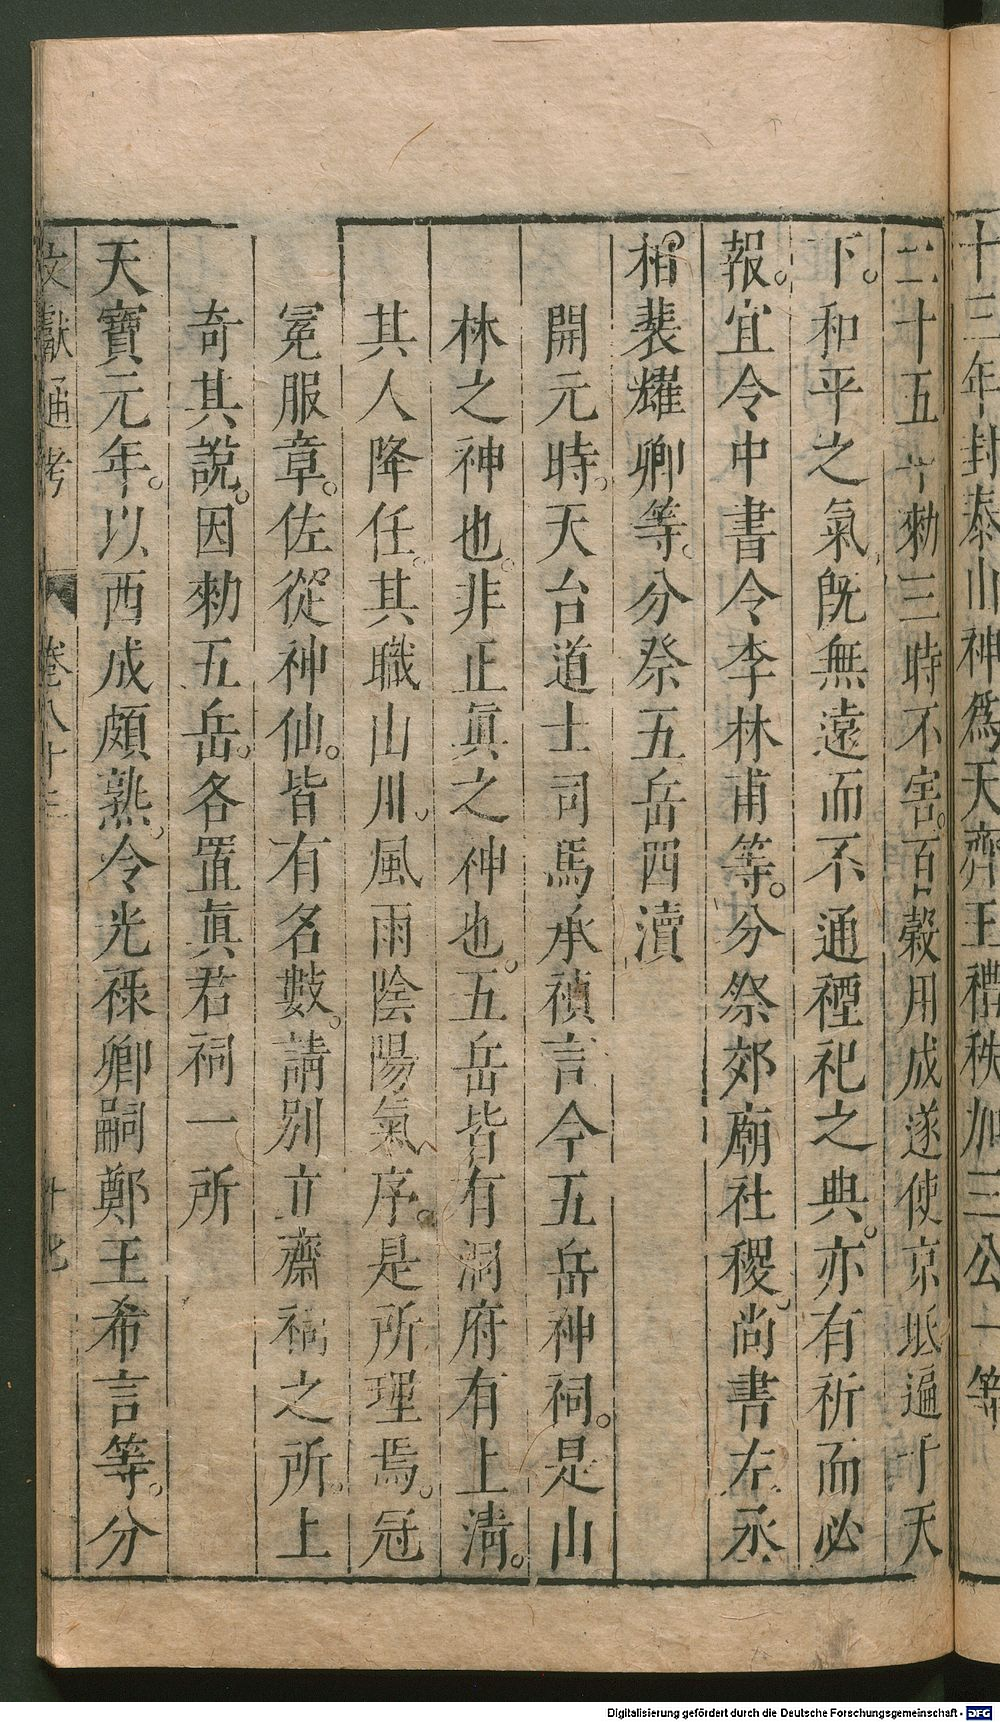 十三年封泰山神爲天齊王禮秩加三公一等
二十五年勑三時不害。百穀用成遂使京坻遍于天
下。和平之氣既無遠而不通禋祀之典。亦有祈而必
報。宜令中書令李林甫等。分祭郊廟社稷。尚書左丞
相裴耀卿等。分祭五岳四瀆
開元時。天台道士司馬承禎言今五岳神祠。是山
林之神也。非正眞之神也。五岳皆有洞府有上清。
其人降任。其職山川。風雨陰陽氣序。是所理焉。冠
冕服章。佐從神仙。皆有名數。請別立齋祠之所。上
奇其說。因勑五岳。各置眞君祠一所
天寶元年。以西成頗熟。令光祿卿嗣鄭王希言等。分
文獻通考 卷八十三
Digitalisierung gefördert durch die Deutsche Forschungsgemeinschaft - DFG